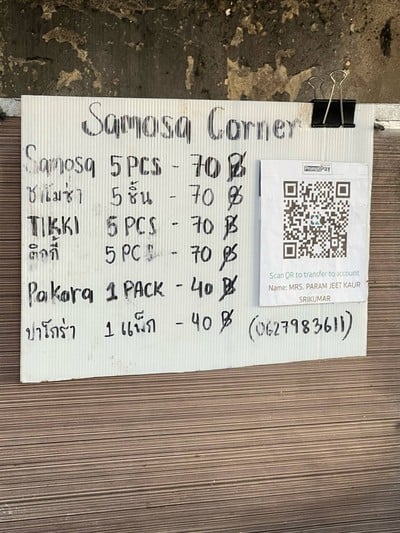 Samosa Corner
Samosa 5 PCS - 70 ฿
ซาโมซ่า 5 ชิ้น - 70 ฿
TIKKI 5 PCS - 70 ฿
ติกกี้ 5 PCS - 70 ฿
Pakora 1 PACK - 40 ฿
ปาโกร่า 1 แพ็ก - 40 ฿
PromptPay
Scan QR to transfer to account
Name: MRS. PARAM JEET KAUR
SRIKUMAR
(0627983611)